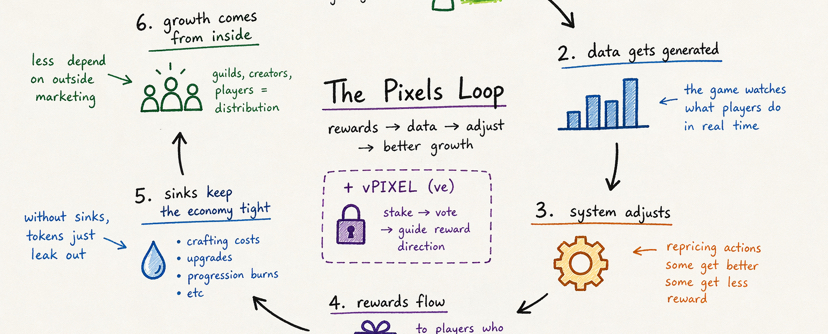 6. growth comes
from inside
less depend
on outside
marketing
guilds, creators,
players =
distribution
The Pixels Loop
rewards → data → adjust
→ better growth
+ vPIXEL (ve)
stake → vote
→ guide reward
direction
2. data gets generated
the game watches
what players do
in real time
3. system adjusts
repricing actions
some get better
some get less
reward
4. rewards flow
to players who
5. sinks keep
the economy tight
without sinks,
tokens just
leak out
• crafting costs
• upgrades
• progression burns
• etc